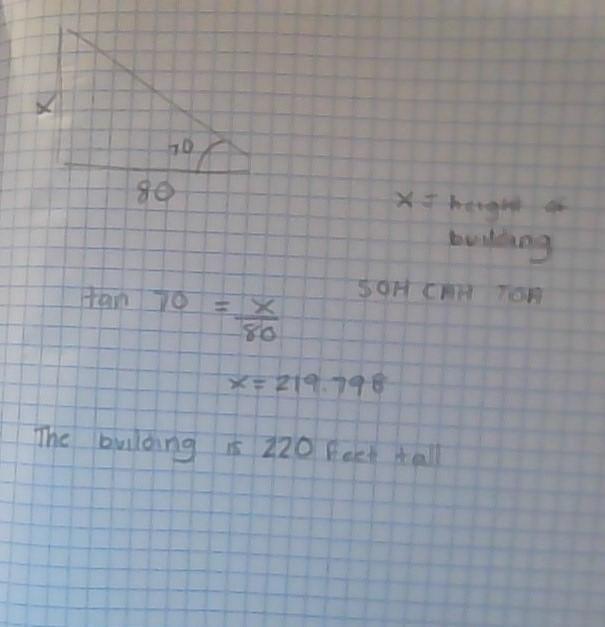 x
70
80
x = height of
building
tan 70 = x/80
SOH CAH TOA
x = 219.798
The building is 220 feet tall